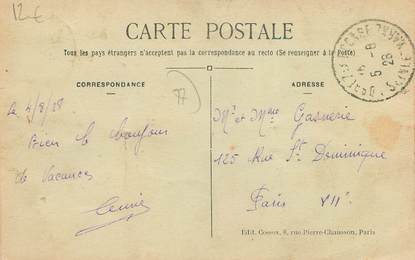 12€
CARTE POSTALE
Tous les pays étrangers n'acceptent pas la correspondance au recto (Se renseigner à la Poste)
77
CORRESPONDANCE
ADRESSE
le 4/8/28
Bien le bonjour
de Vacances
Mr et Mme Gasnerie
125 Rue St Dominique
Paris VIIe
Edit. Cossex, 6, rue Pierre-Chausson, Paris